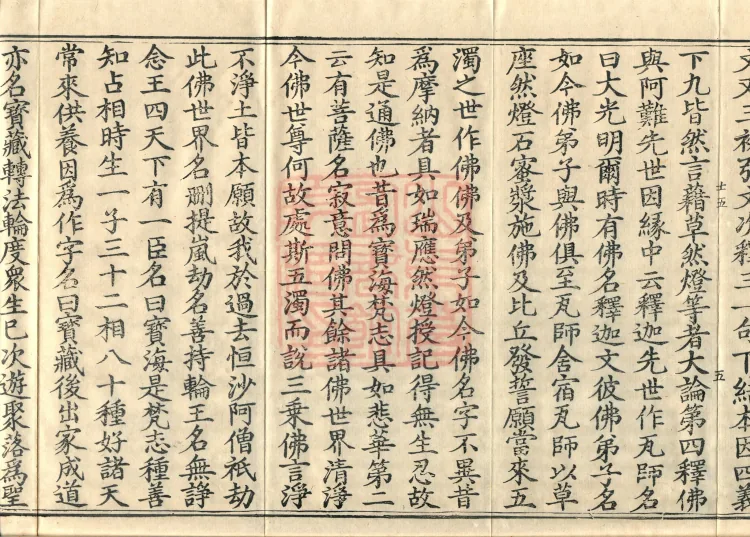 下九皆然言藉草然燈等者大論第四釋佛
與阿難先世因緣中云釋迦先世作瓦師名
曰大光明爾時有佛名釋迦文彼佛弟子名
如今佛弟子與佛俱至瓦師舍宿瓦師以草
座然燈石蜜漿施佛及比丘發誓願當來五
濁之世作佛佛及弟子如今佛名字不異昔
爲摩納者具如瑞應然燈授記得無生忍故
知是通佛也昔爲寶海梵志具如悲華第二
云有菩薩名寂意問佛其餘諸佛世界清淨
今佛世尊何故處斯五濁而說三乘佛言淨
不淨土皆本願故我於過去恒沙阿僧祇劫
此佛世界名刪提嵐劫名善持輪王名無諍
念王四天下有一臣名曰寶海是梵志種善
知占相時生一子三十二相八十種好諸天
常來供養因爲作字名曰寶藏後出家成道
亦名寶藏轉法輪度衆生已次遊聚落爲聖
士五
五